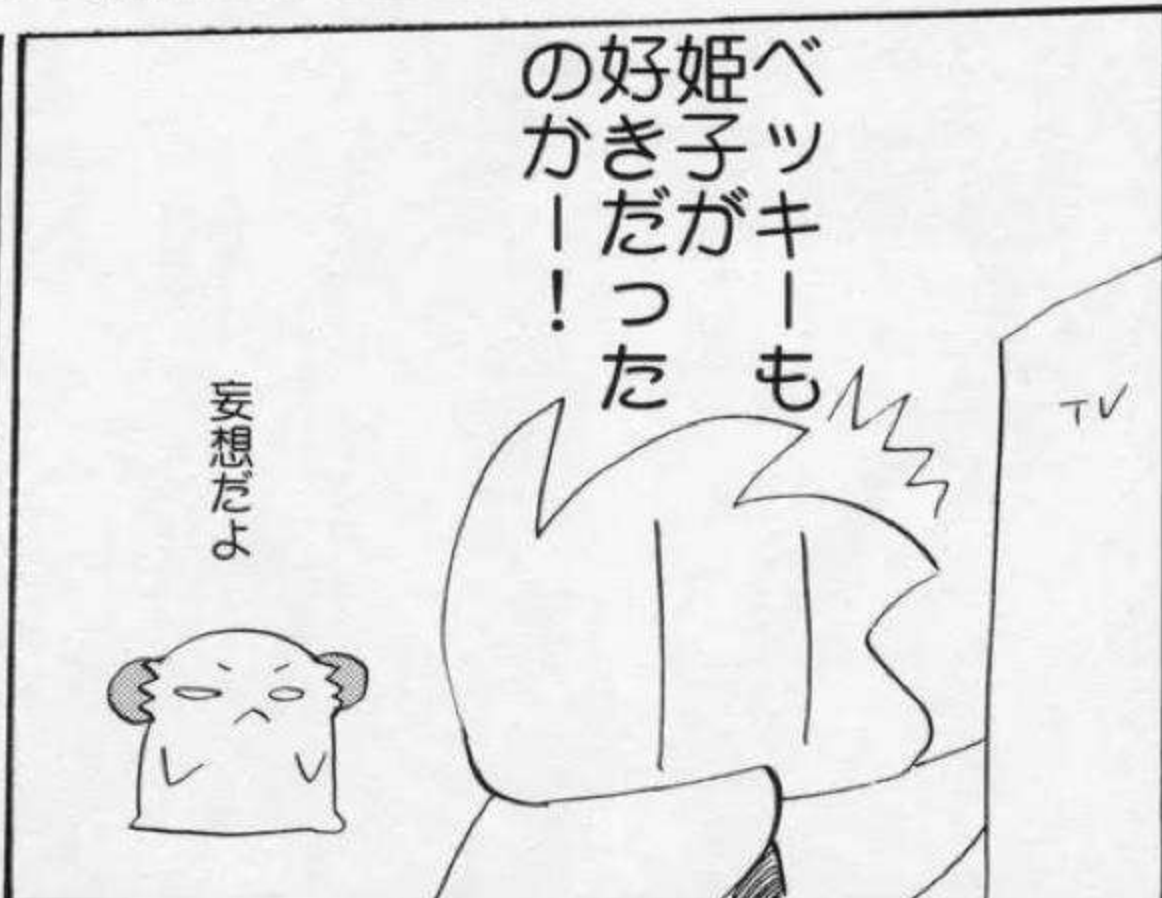 ベッキーも
姫子が
好きだった
のかー！
TV
妄想だよ